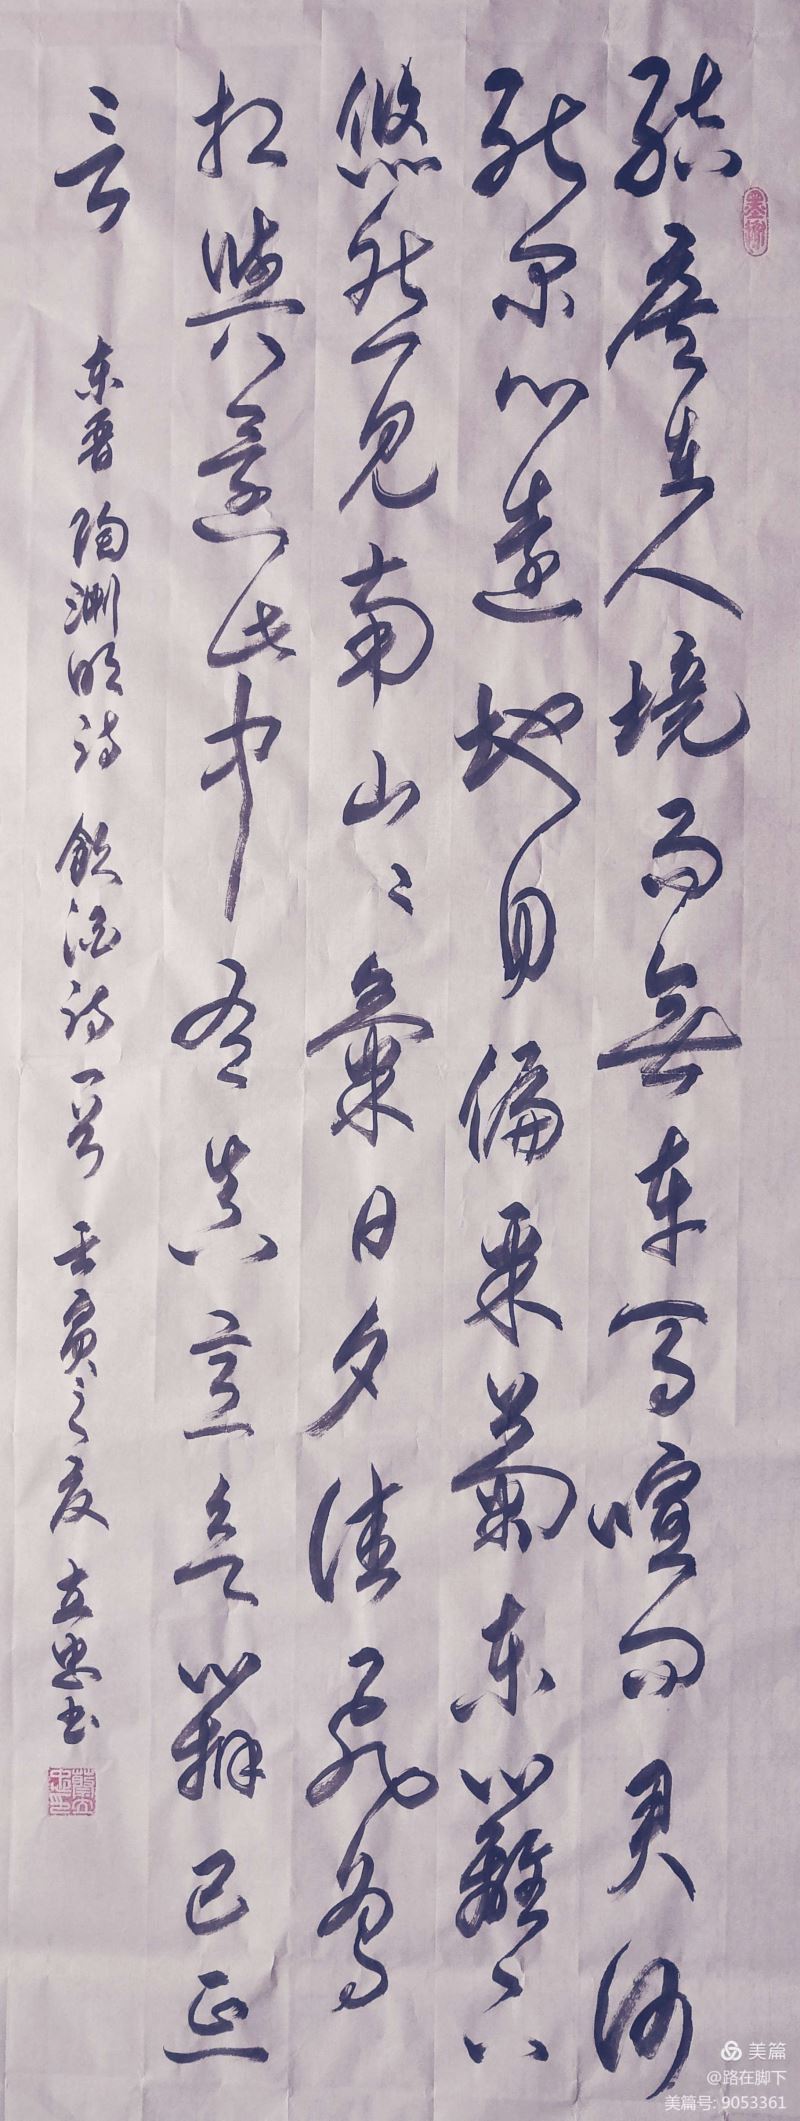 結廬在人境而無车马喧问君何
能尔心遠地自偏采菊东籬下
悠然见南山〻氣日夕佳飛鸟
相與還此中有真意欲辨已忘
言 东晋 陶渊明诗 飲酒诗一首 壬寅之夏 立忠书
美篇
@路在脚下
美篇号: 9053361